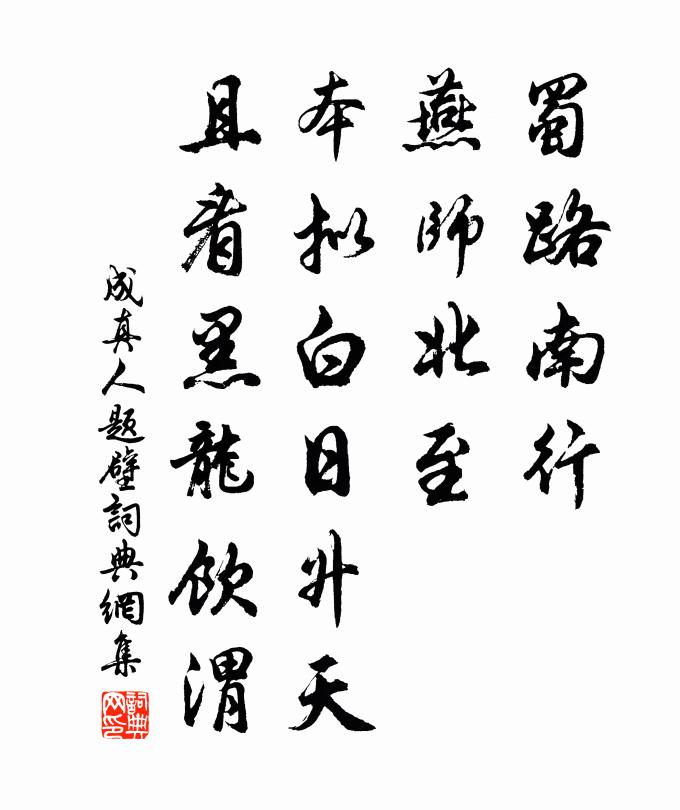 蜀路南行
燕師北至
本拟白日升天
且看黑龍飲渭
成真人題壁詞典網集
詞典
网印